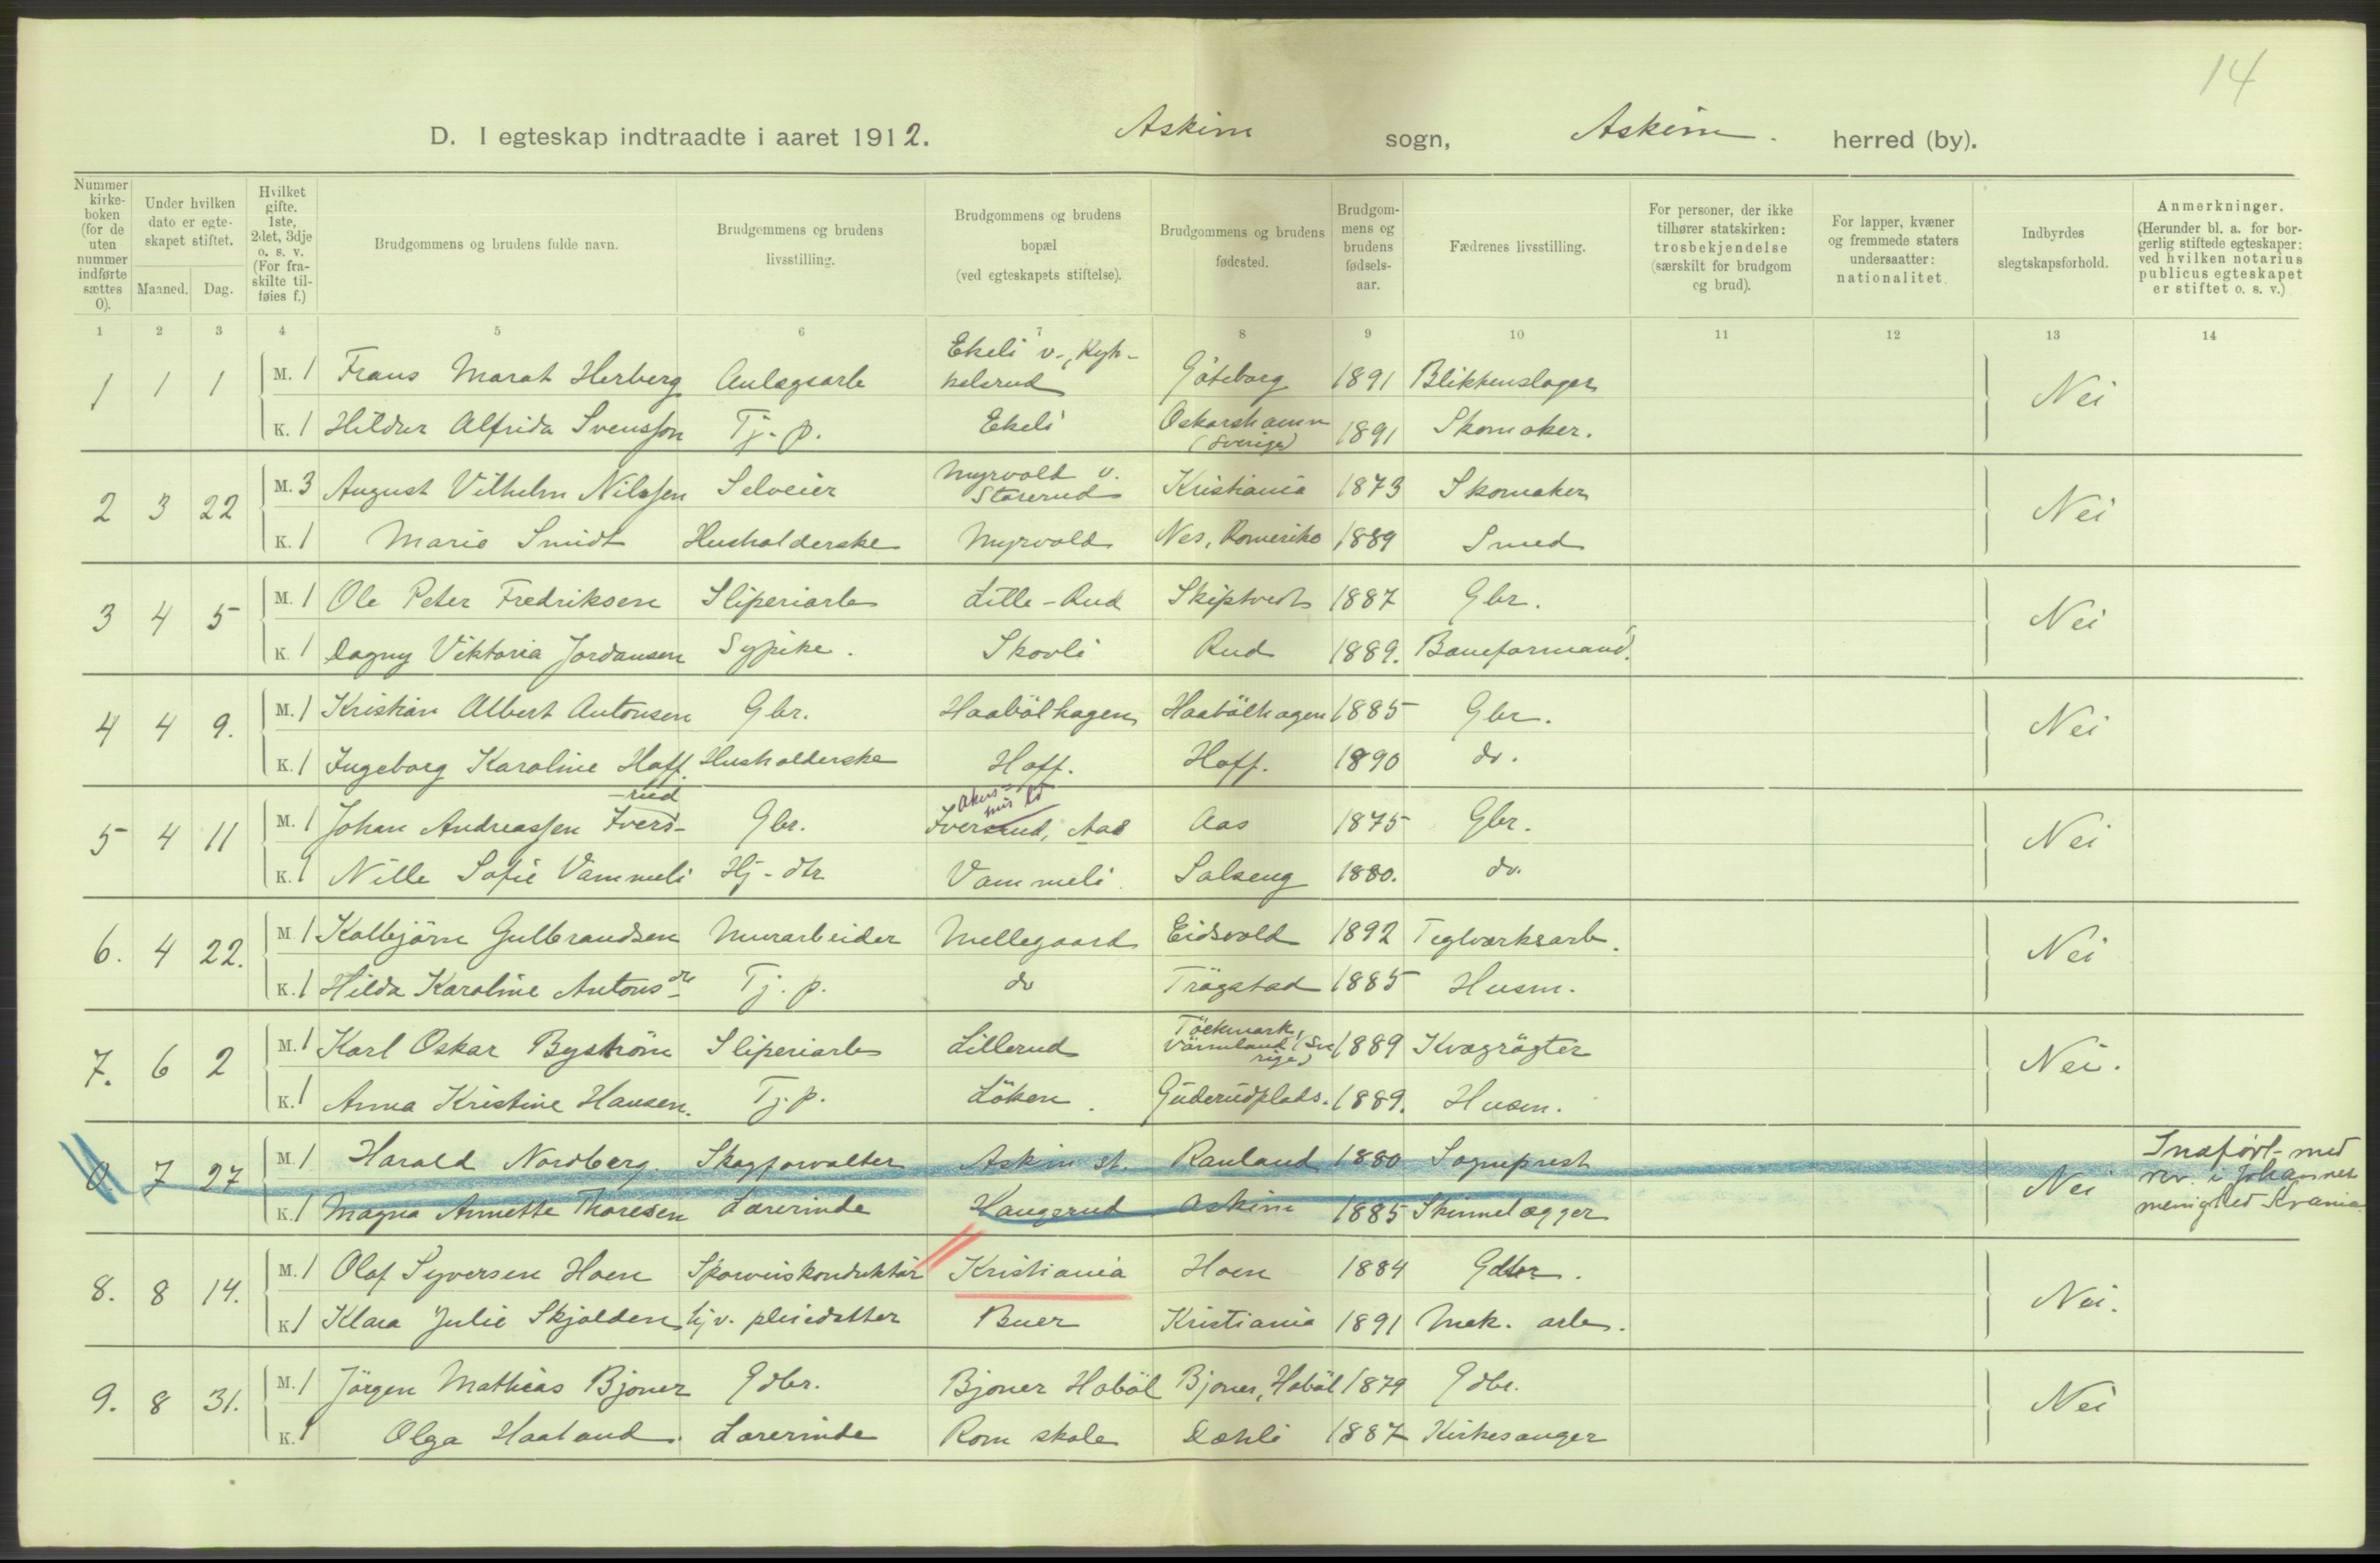 14
D. I egteskap indtraadte i aaret 1912. Askim sogn, Askim. herred (by).
Nummer kirke-boken (for de uten nummer indførte sættes 0).
Under hvilken dato er egte-skapet stiftet. Maaned. Dag.
Hvilket gifte. 1ste, 2det, 3dje o. s. v. (For fra-skilte til-føies f.)
Brudgommens og brudens fulde navn.
Brudgommens og brudens livsstilling.
Brudgommens og brudens bopæl (ved egteskapets stiftelse).
Brudgommens og brudens fødested.
Brudgom-mens og brudens fødsels-aar.
Fædrenes livsstilling.
For personer, der ikke tilhører statskirken: trosbekjendelse (særskilt for brudgom og brud).
For lapper, kvæner og fremmede staters undersaatter: nationalitet.
Indbyrdes slegtskapsforhold.
Anmerkninger. (Herunder bl. a. for bor-gerlig stiftede egteskaper: ved hvilken notarius publicus egteskapet er stiftet o. s. v.)
1 2 3 4 5 6 7 8 9 10 11 12 13 14
1 1 1 M. 1 Frans Marat Herberg Anlægsarb Ekeli v., Kyk-kelsrud Göteborg 1891 Blikkenslager Nei
K. 1 Hildur Alfrida Svensson Tj. p. Ekeli Oskarshamn (Sverige) 1891 Skomaker.
2 3 22 M. 3 August Vilhelm Nilssen Selveier Myrvold v. Starerud Kristiania 1873 Skomaker Nei
K. 1 Marie Smidt Husholderske Myrvold Nes, Romerike 1889 Smed
3 4 5 M. 1 Ole Peter Fredriksen Sliperiarb Lille-Rud Skiptvedt 1887 Gbr. Nei
K. 1 Dagny Viktoria Jordansen Sypike. Skovli Rud 1889. Baneformand.
4 4 9. M. 1 Kristian Albert Antonsen Gbr. Haabölhagen Haabölhagen 1885 Gbr. Nei
K. 1 Ingeborg Karoline Hoff. Husholderske Hoff. Hoff. 1890 do.
5 4 11 M. 1 Johan Andreassen Ivers-rud Gbr. Iversrud, Aas Akers-hus Aas 1875 Gbr. Nei
K. 1 Nille Sofie Vammeli Hj-dtr Vammeli Solseng 1880. do.
6. 4 22. M 1 Kolbjørn Gulbrandsen Murarbeider Mellegaard Eidsvold 1892 Teglværksarb. Nei
K. 1 Hilda Karoline Antonsdtr Tj. p. do Trögstad 1885 Husm.
7. 6 2 M. 1 Karl Oskar Byström Sliperiarb Lillerud Töckmark, Värmland (Sverige) 1889 Kvægrögter Nei.
K. 1 Anna Kristine Hansen. Tj. p. Löken. Guderudplads. 1889. Husm.
0 7 27 M. 1 Harald Nordberg. Skogforvalter Askim st. Rauland 1880 Sogneprest Nei Indført med rev. i Johannes menighed Krania.
K. 1 Magna Annette Thoresen Lærerinde Haugerud Askim 1885 Skinnelægger
8. 8 14. M. 1 Olaf Syversen Hoen Sporveiskonduktør Kristiania Hoen 1884 Gdbr. Nei.
K 1 Klara Julie Skjolden hjv. pleiedatter Buer Kristiania 1891 Mek. arb.
9. 8 31. M. 1 Jörgen Mathias Bjoner Gdbr. Bjoner Hoböl Bjoner, Hoböl 1879 Gdbr. Nei
K. 1 Olga Haaland. Lærerinde Rom skole Dæhli 1887 Kirkesanger